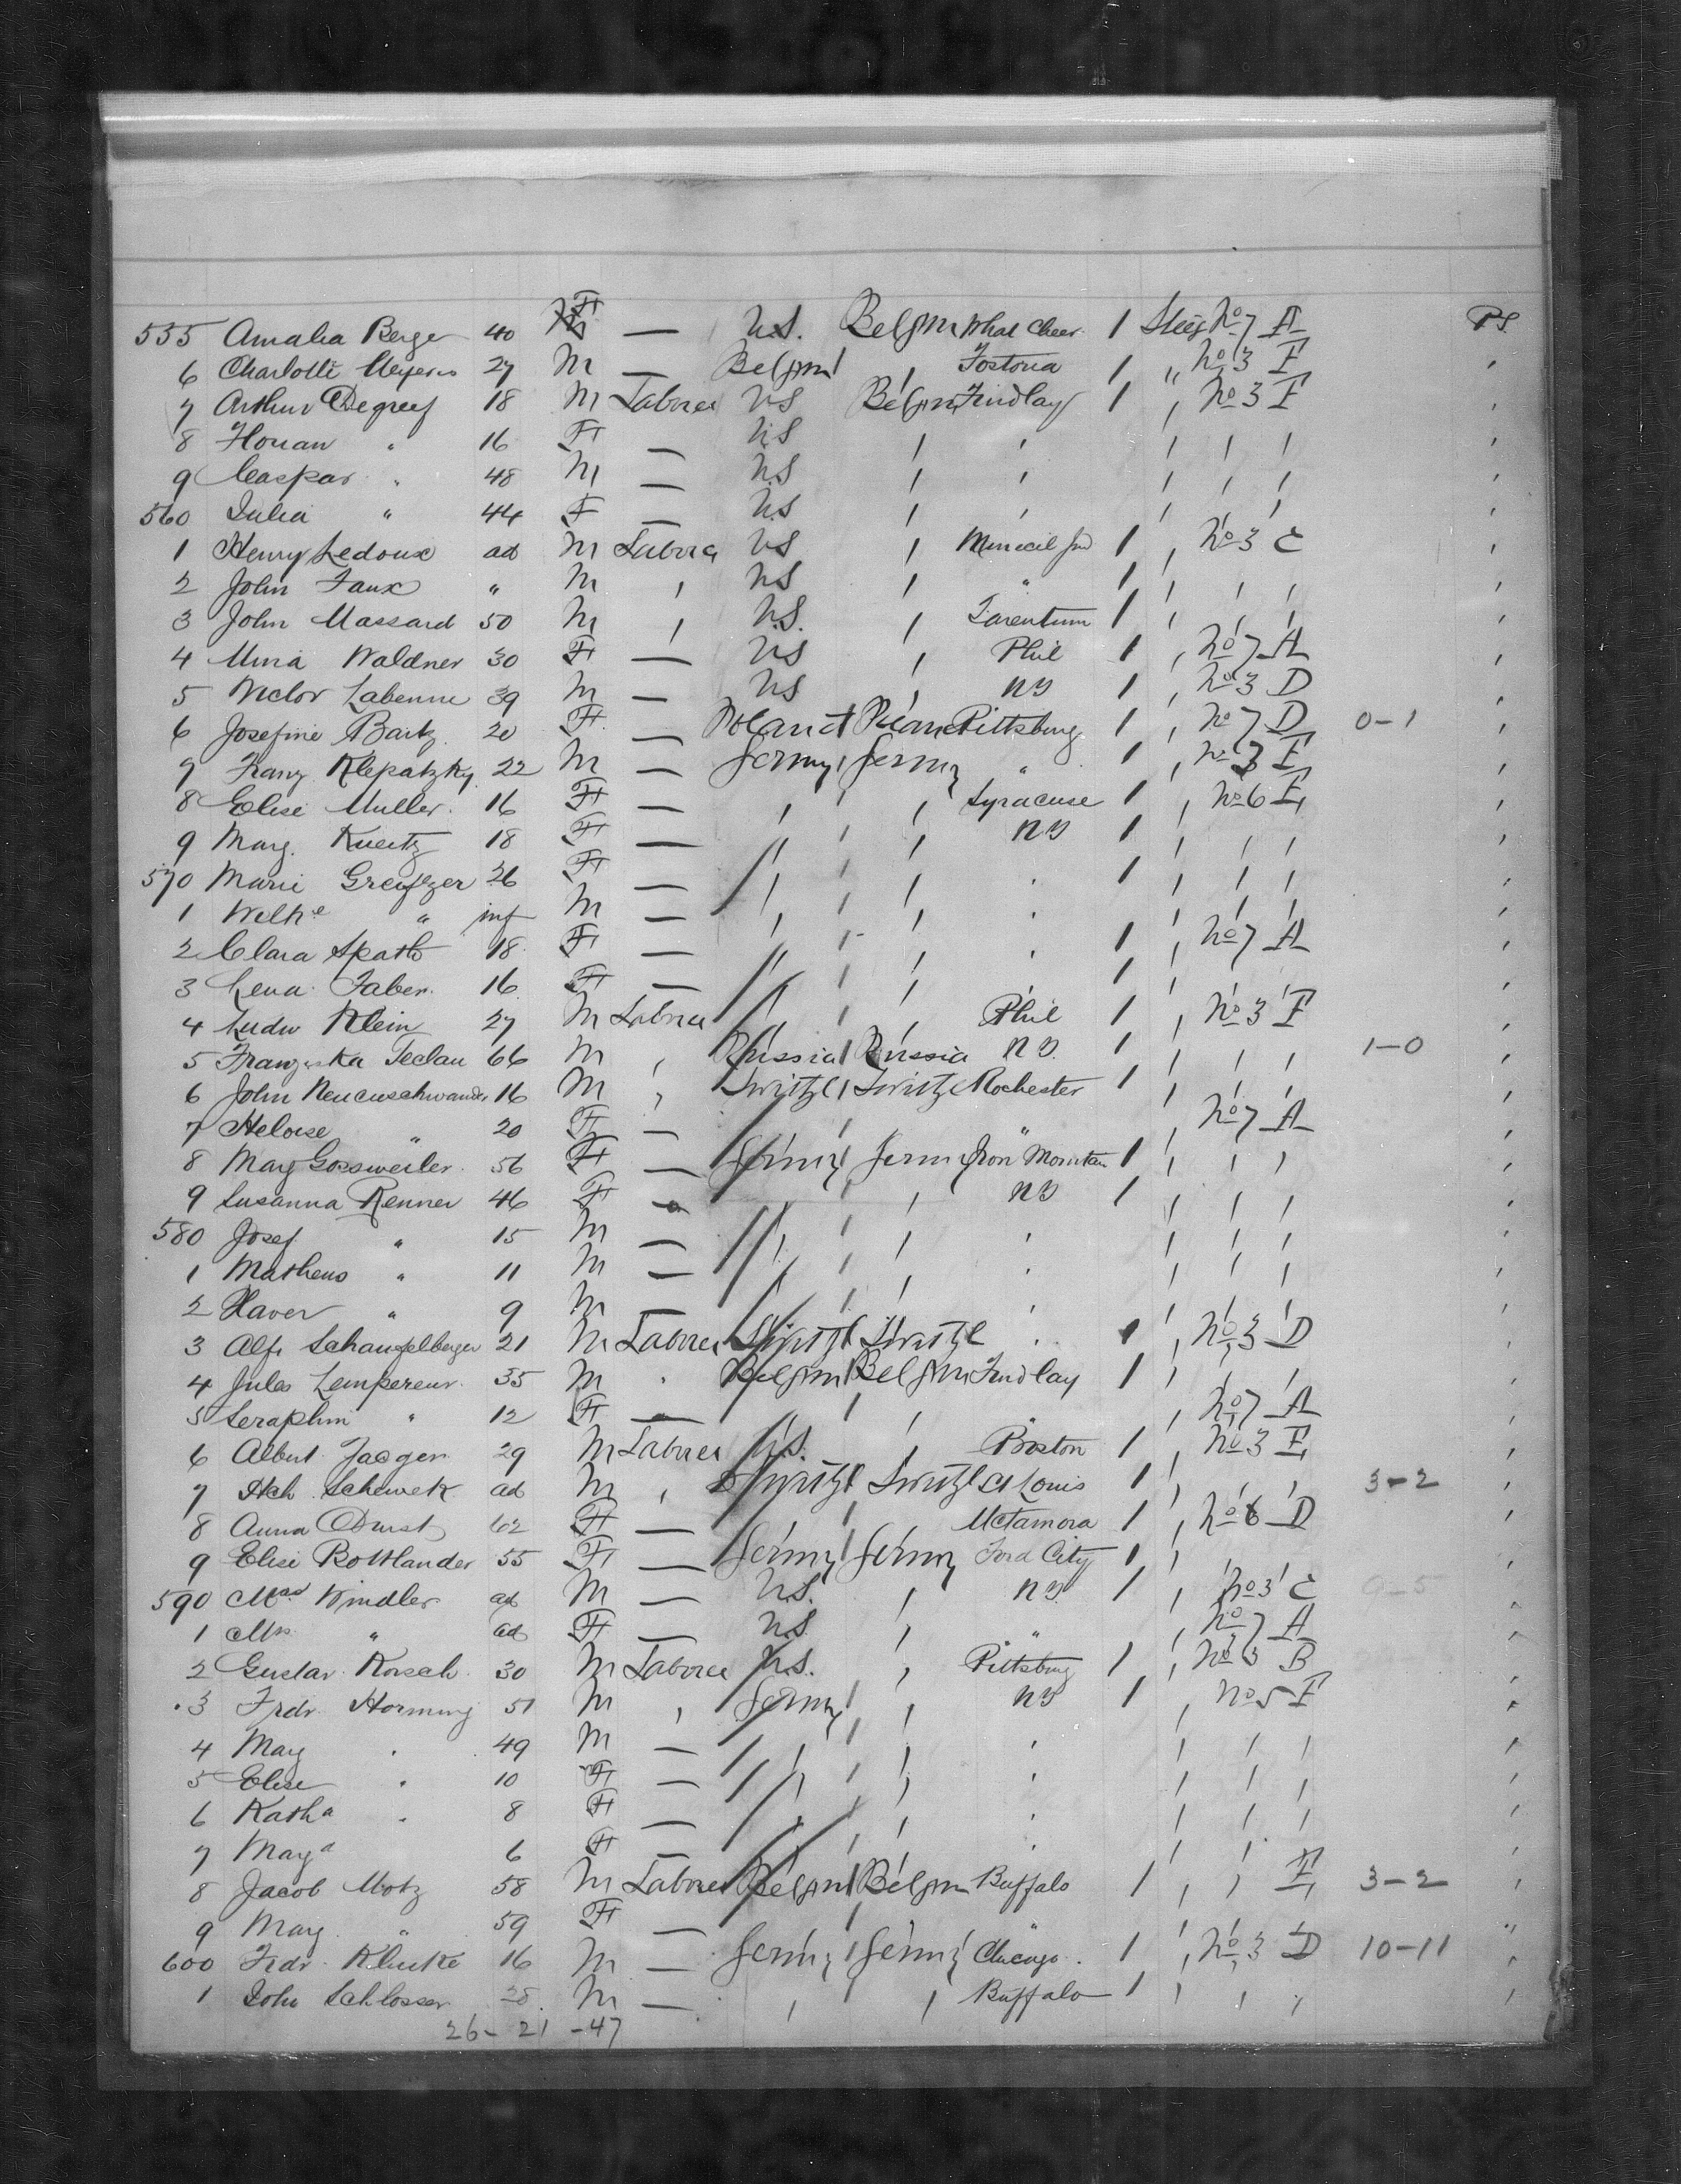 555 Amalia Berger 40 F — U.S. Belgm What Cheer 1 Steeg No 7 A P.S.
6 Charlotte Meyers 27 M — Belgm , Fostoria 1 " No 3 F ,
7 Arthur Degreef 18 M Laborer US Belgm Findlay 1 , No 3 F ,
8 " 16 F — US , , , , , ,
9 Caspar " 48 M — US , , , , , ,
560 Julia " 44 F — US , , , , , ,
1 Henry Ledoux ad M Laborer US , Ind 1 , No 3 C ,
2 John Faux " M , US , " 1 , , , ,
3 John Massard 50 M , U.S. , Tarentum 1 , , , ,
4 Mina Waldner 30 F — US , Phil 1 , No 7 A ,
5 Victor Labenne 39 M — US , NY 1 , No 3 D ,
6 Josefine Bartz 20 F — Poland Poland Pittsburg 1 , No 7 D 0-1 ,
7 Franz Klepatzky 22 M — Germy Germy " 1 , No 3 F ,
8 Elise Muller 16 F — , , Syracuse 1 , No 6 F ,
9 Marg. Kuertz 18 F — , , NY 1 , , , ,
570 Marie 26 F — , , , 1 , , , ,
1 " inf M — , , , , , , ,
2 Clara Spath 18 F — , , , 1 , No 7 A ,
3 Lena Faber 16 F — , , 1 , , , ,
4 Ludw Klein 27 M Laborer , , Phil 1 , No 3 F ,
5 Franziska Teclau 66 M , Russia Russia NY. 1 , , , 1-0 ,
6 John Neucuschwander 16 M , Switzl Switzl Rochester 1 , , , ,
7 Heloise " 20 F — , " , No 7 A ,
8 Marg Gossweiler 56 F — Germy Germy Iron Mountain 1 , , , ,
9 Susanna Renner 46 F — , , NY 1 , , , ,
580 Josef " 15 M — , , , , , , ,
1 Matheus " 11 M — , , , , , , ,
2 Xaver " 9 M — , , , , , , ,
3 Alf. Schaufelberger 21 M Laborer Switzl Switzl " 1 , No 3 D ,
4 Jules Lempereur 35 M , Belgm Belgm Findlay 1 , , , ,
5 Seraphin " 12 F — , , " , No 7 A ,
6 Albert Jaeger 29 M Laborer U.S. , Boston 1 , No 3 F ,
7 Hch. Schewek ad M , Switzl Switzl St Louis 1 , , , 3-2 ,
8 Anna Durst 62 F — , , Metamora 1 , No 6 D ,
9 Elise Rottlander 55 F — Germy Germy Ford City 1 , , , ,
590 Windler ad M — U.S. , NY 1 , No 3 C ,
1 Mrs " ad F — U.S. , " , No 7 A ,
2 Gustav Korsch 30 M Laborer U.S. , Pittsburg 1 , No 3 B ,
3 Fredr. Horning 51 M , Germy , NY 1 , No 5 F ,
4 Marg " 49 M — , , , , , , ,
5 Elise " 10 F — , , , , , , ,
6 Katha " 8 F — , , , , , , ,
7 Marga 6 F — , , , , , , ,
8 Jacob Motz 58 M Laborer Belgm Belgm Buffalo 1 , , F 3-2 ,
9 Marg " 59 F — , , " , , , "
600 Fredr. Klucke 16 M — Germy Germy Chicago. 1 , No 3 D 10-11 ,
1 John Schlosser 28 M — , , Buffalo 1 , , , ,
26-21-47